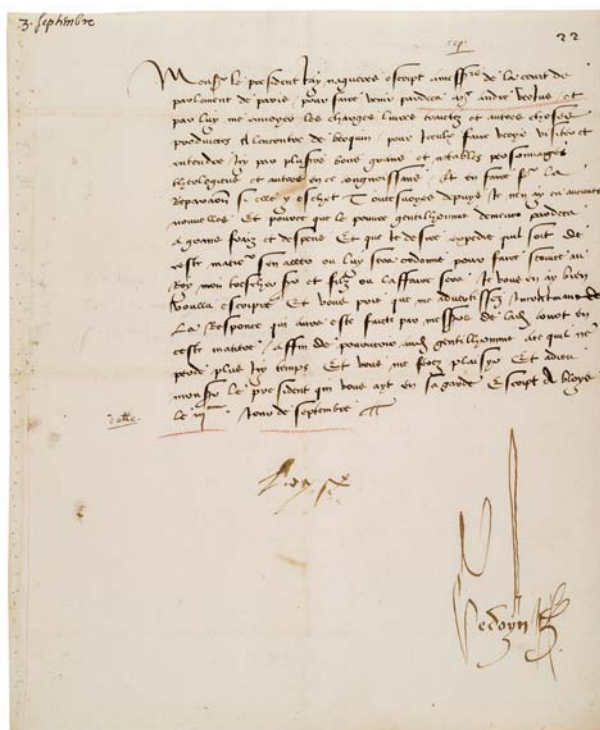 3. septembre
22
Monsr le president Jay nagueres escript a messrs de la court de
parlement de paris pour faire venir pardeca me andre verjus et
par luy me envoyer les charges livres traictez et autres choses
produictes A lencontre de berquin pour Iceulx faire veoir visiter et
entendre Icy par plusrs bons grans et notables personnages
theologiens et autres en ce congnoissans Et en faire f la
Reparaon si elle y eschet Toutesvoyes depuys Je nen ay eu aucunes
nouvelles Et pource que le pouvre gentilhomme demeure pardeca
a grans fraiz et despens Et que Je desire expedie quil soit de
ceste matiere sen aller ou luy sera ordonne pour faire service au
Roy mon trescher sr et filz ou laffaire sera Je vous en ay bien
voullu escripre Et vous prie que me advertissez Incontinant de
La Responce qui aura este faicte par messrs de lad court en
ceste matiere affin de pourveoir aud gentilhomme ace quil ne
perde plus Icy temps Et vous me ferez plaisir Et adieu
monsr le president qui vous ayt en sa garde Escript A bloys
le iiime Jour de septembre
Loyse
Hedoyn